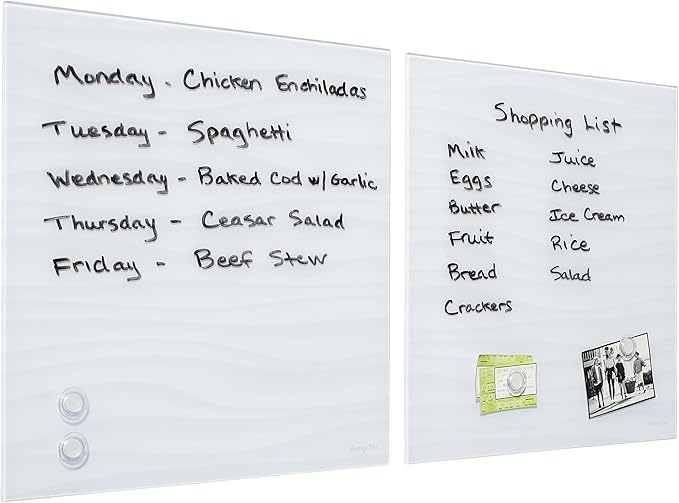 Monday - Chicken Enchiladas
Tuesday - Spaghetti
Wednesday - Baked Cod w/Garlic
Thursday - Ceasar Salad
Friday - Beef Stew
Shopping List
Milk
Eggs
Butter
Fruit
Bread
Crackers
Juice
Cheese
Ice Cream
Rice
Salad